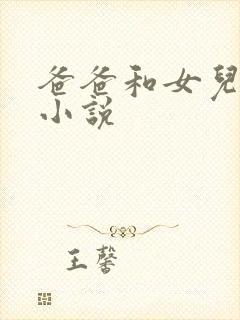 爸爸和女兒
小說
王馨